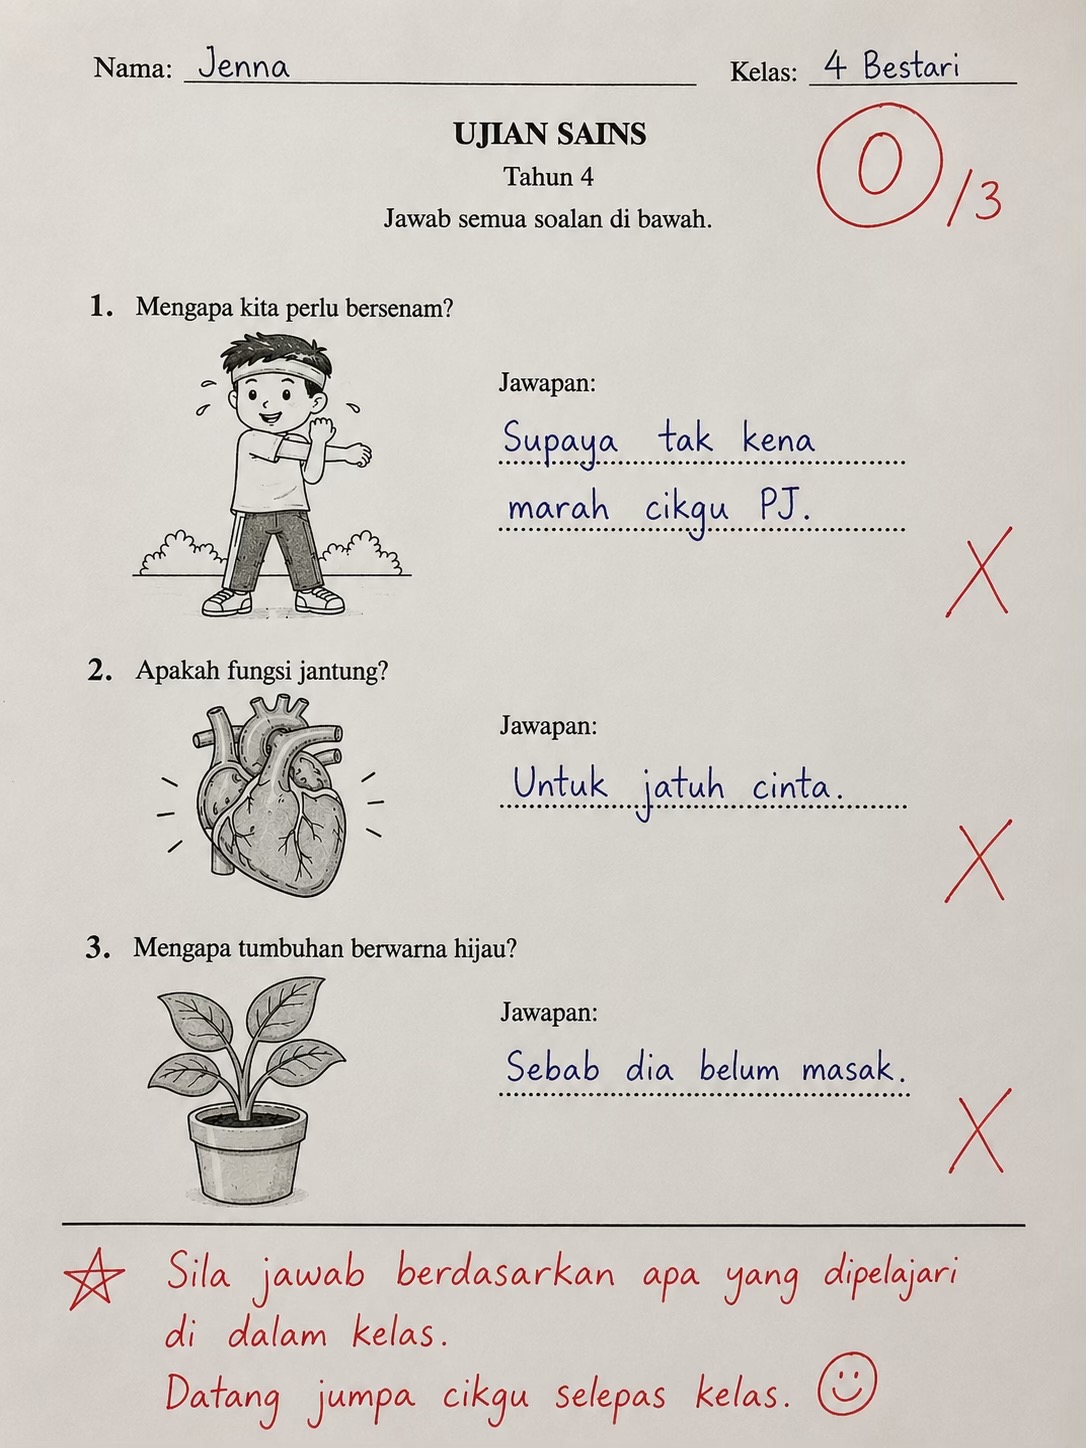 Nama: Jenna Kelas: 4 Bestari
UJIAN SAINS
0/3
Tahun 4
Jawab semua soalan di bawah.
1. Mengapa kita perlu bersenam?
Jawapan:
Supaya tak kena
marah cikgu PJ.
2. Apakah fungsi jantung?
Jawapan:
Untuk jatuh cinta.
3. Mengapa tumbuhan berwarna hijau?
Jawapan:
Sebab dia belum masak.
Sila jawab berdasarkan apa yang dipelajari
di dalam kelas.
Datang jumpa cikgu selepas kelas.